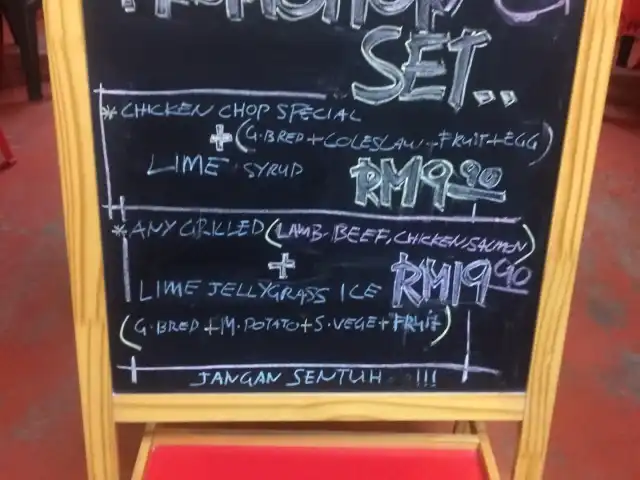 PROMOTION
SET..
* CHICKEN CHOP SPECIAL
+ (G.BRED + COLESLAW + FRUIT + EGG)
LIME SYRUP RM9.90
* ANY GRILLED (LAMB, BEEF, CHICKEN, SALMON)
+
LIME JELLYGRASS ICE RM19 90
(G.BRED + M.POTATO + S.VEGE + FRUIT)
JANGAN SENTUH !!!